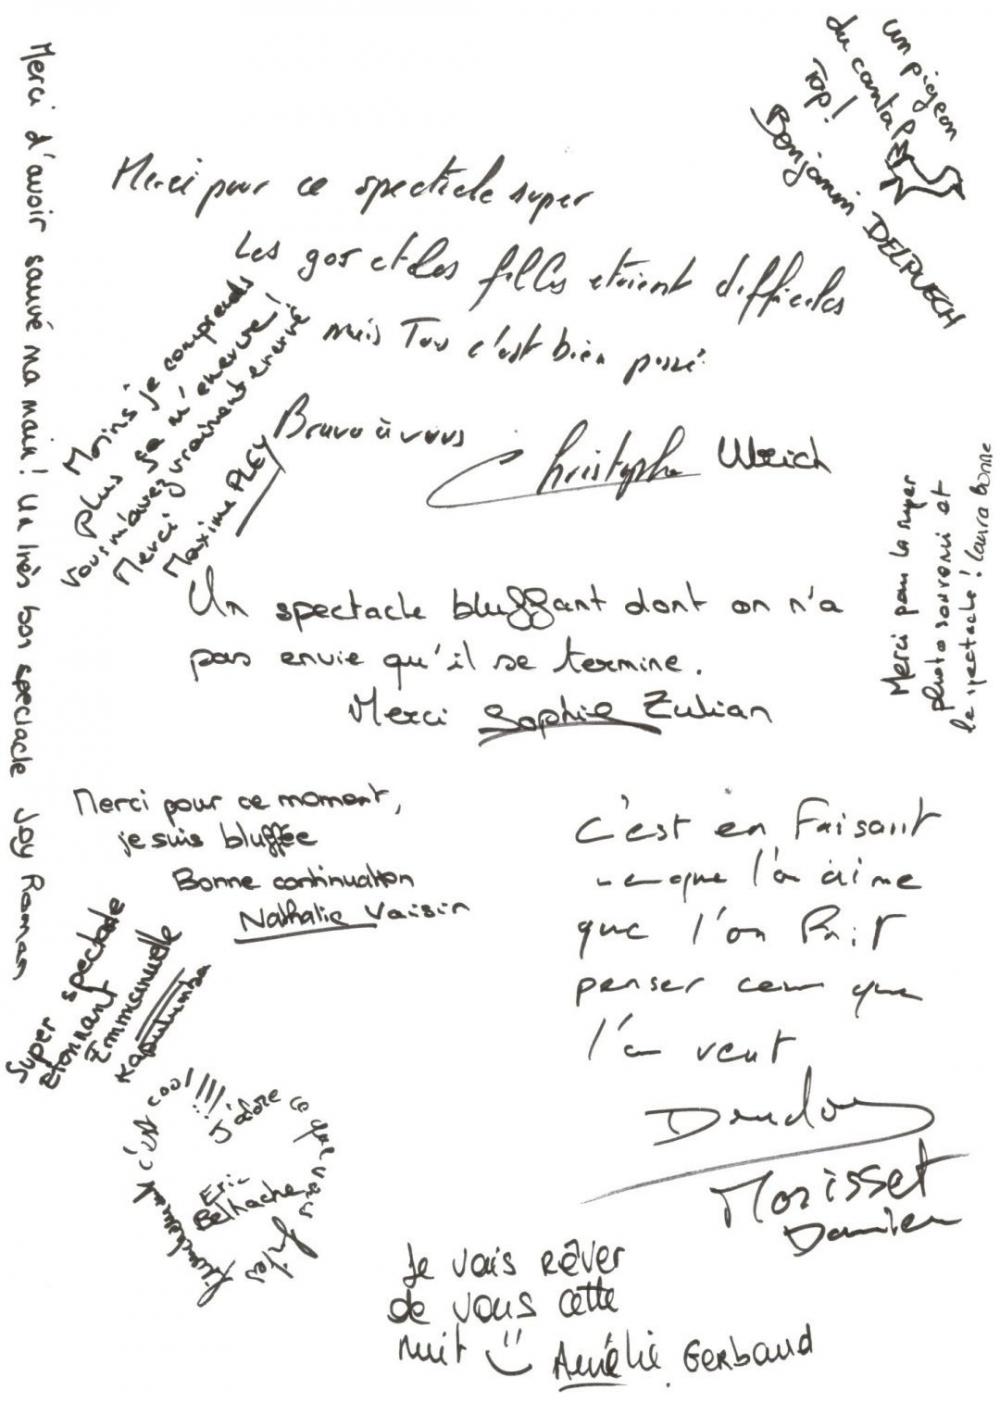 un pigeon
du cantal
Top!
Benjamin DELPUECH
Merci pour ce spectacle super
Les gas et les filles etaient difficiles
mais Tous c'est bien passé
Bravo à vous
Christophe Ulrich
Merci d'avoir sauvé ma main! Un très bon spectacle Joy Roman
Moins je comprends
plus ça m'enerve!
Vous m'avez vraiment enervé!
Merci
Maxime PLEY
Un spectacle bluffant dont on n'a
pas envie qu'il se termine.
Merci Sophie Zulian
Merci pour la super
photo souvenir et
le spectacle! Laura Bonne
Merci pour ce moment,
je suis bluffée
Bonne continuation
Nathalie Vaisin
C'est en Faisant
ce que l'on aime
que l'on Fait
penser ceux que
l'on veut
Morisset
Damien
Super spectacle
étonnant
Emmanuelle
Kapulumba
J'adore ce que vous faites
Franchement c'est cool!!!
Eric
Belhache
Je vais rêver
de vous cette
nuit
Amélie Gerbaud